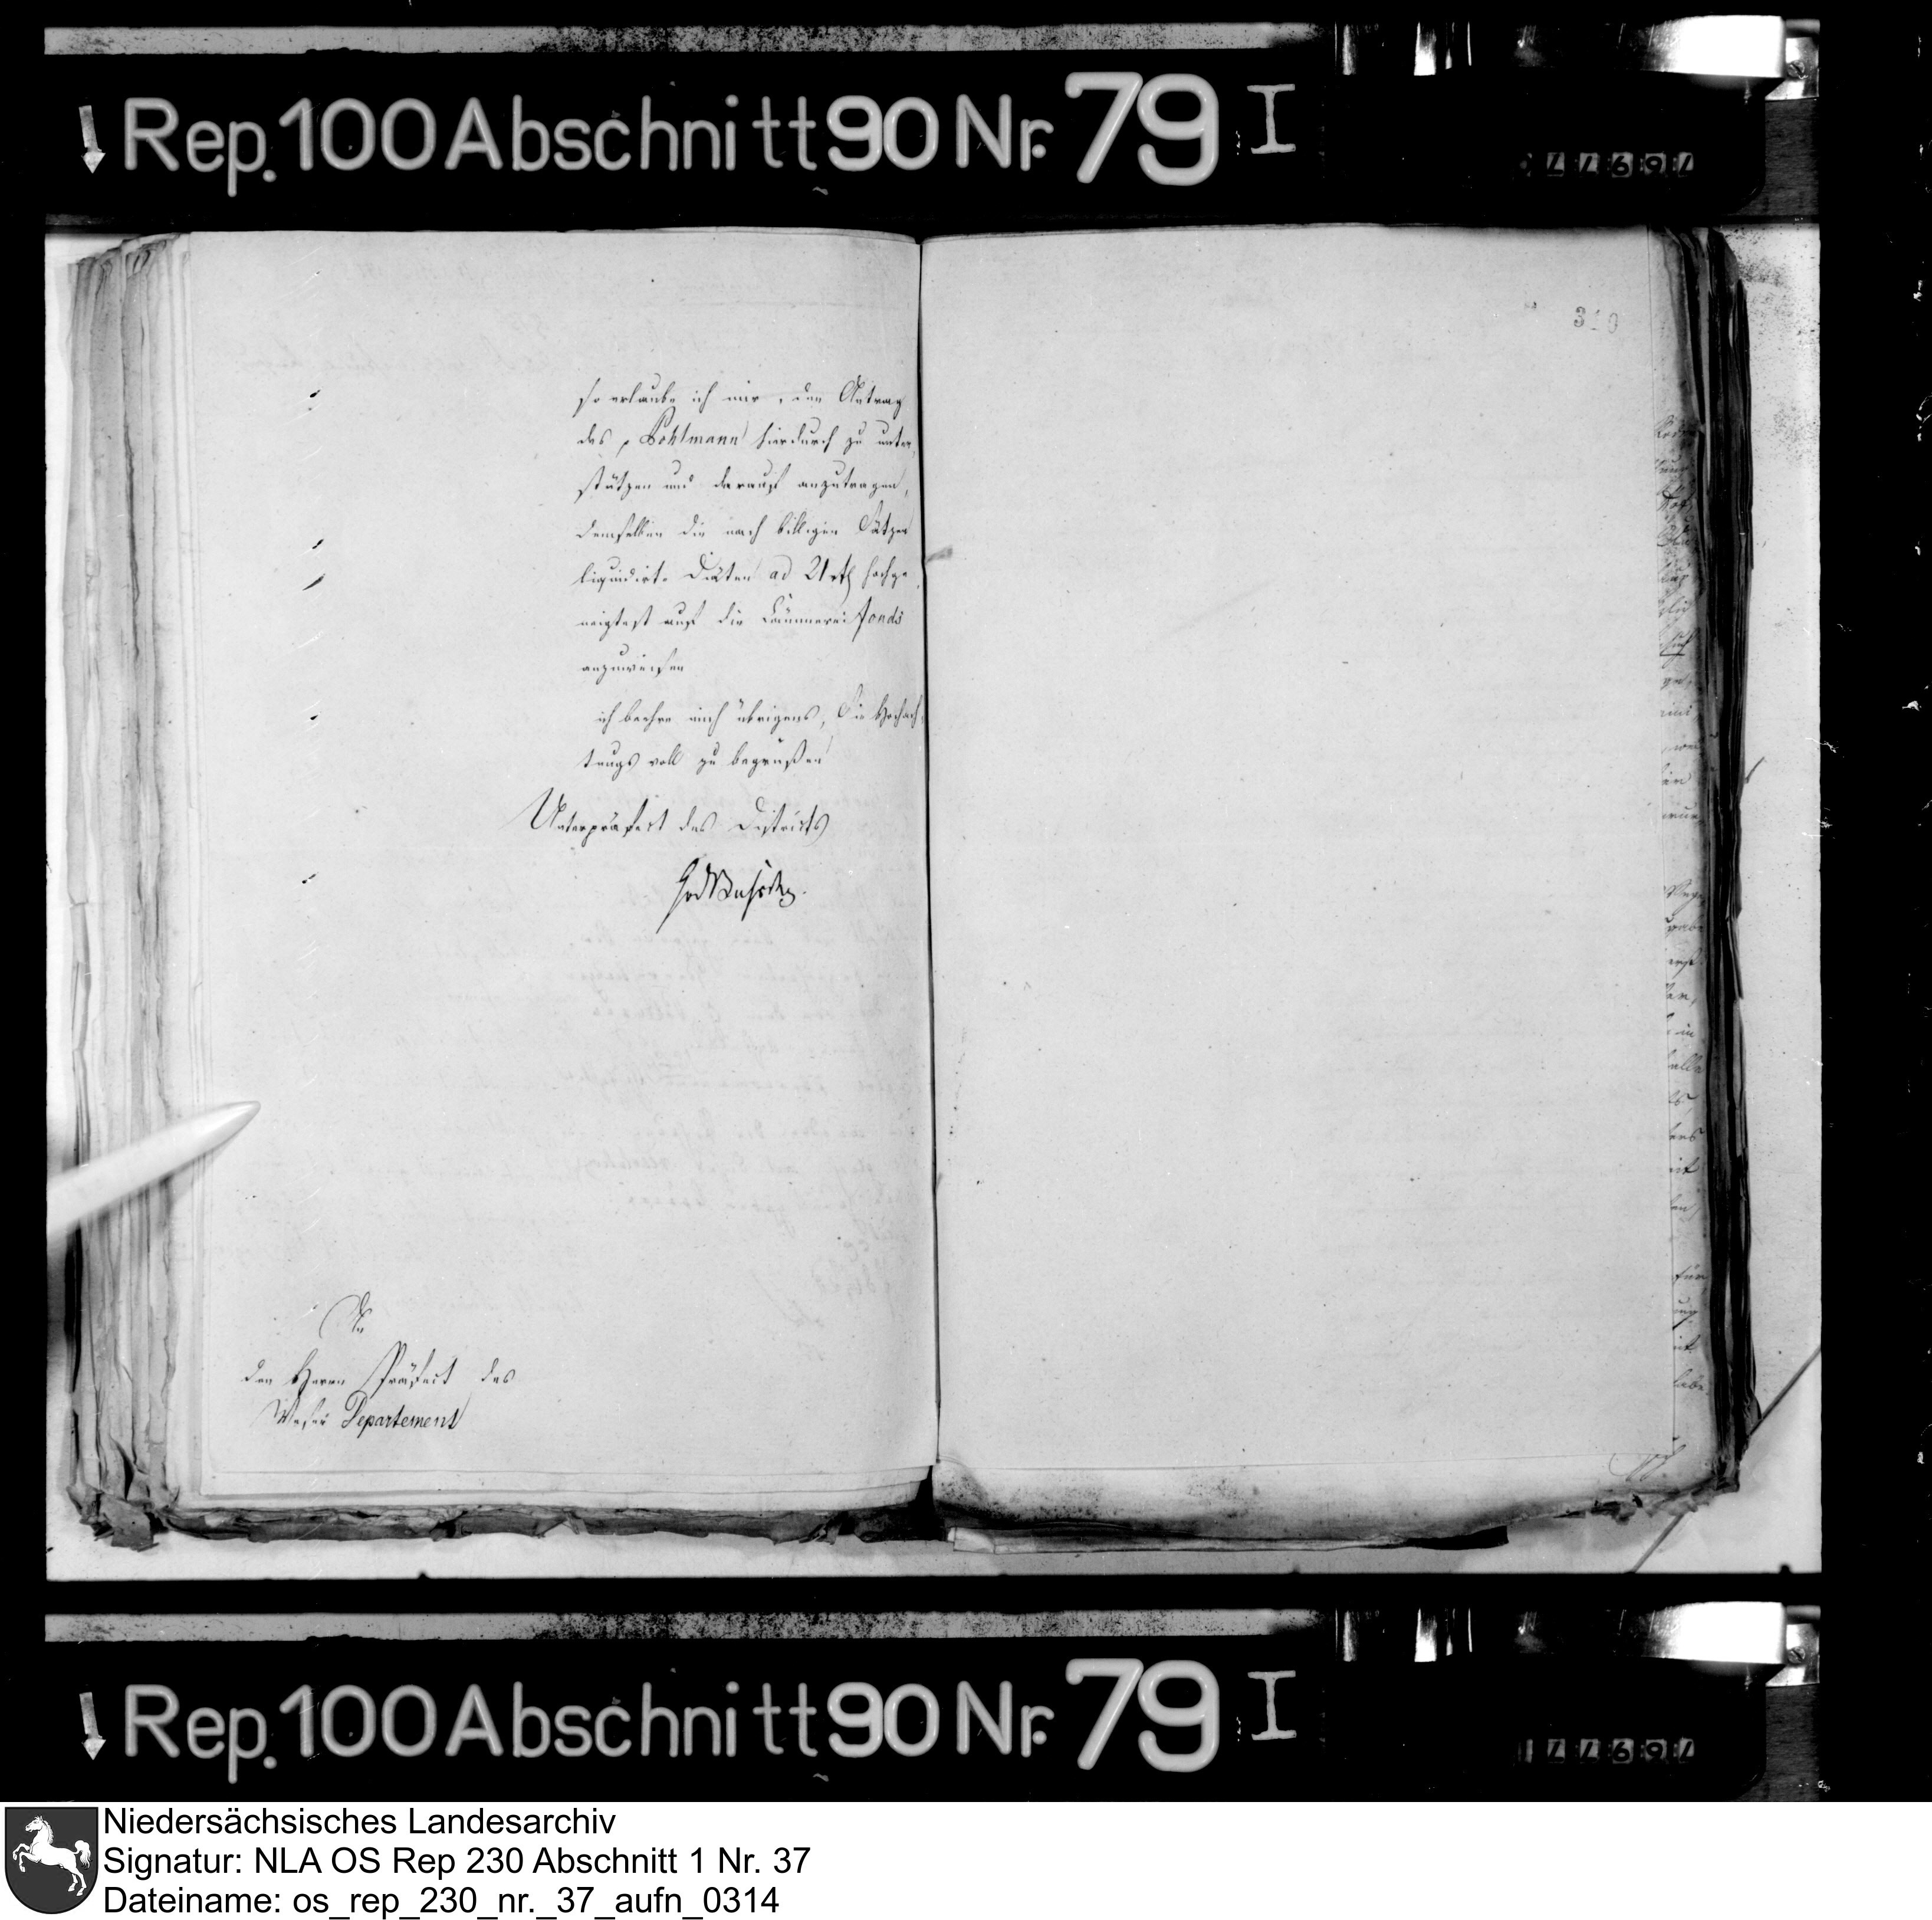 Rep. 100 Abschnitt 90 Nr. 79 I
310
so erlaube ich mir, den Antrag
des p Pohlmann hierdurch zu unter-
stützen und darauf anzutragen,
demselben die nach billigen Sätzen
liquidirte Diäten ad 21 rth hochge-
neigtest auf die Cämmerei fonds
anzuweisen
ich beehre mich übrigens, Sie Hochach-
tungs voll zu begrüßen
Unterpräfect des Districts
An
den Herrn Präfect des
Weser Departement
Rep. 100 Abschnitt 90 Nr. 79 I
Niedersächsisches Landesarchiv
Signatur: NLA OS Rep 230 Abschnitt 1 Nr. 37
Dateiname: os_rep_230_nr._37_aufn_0314